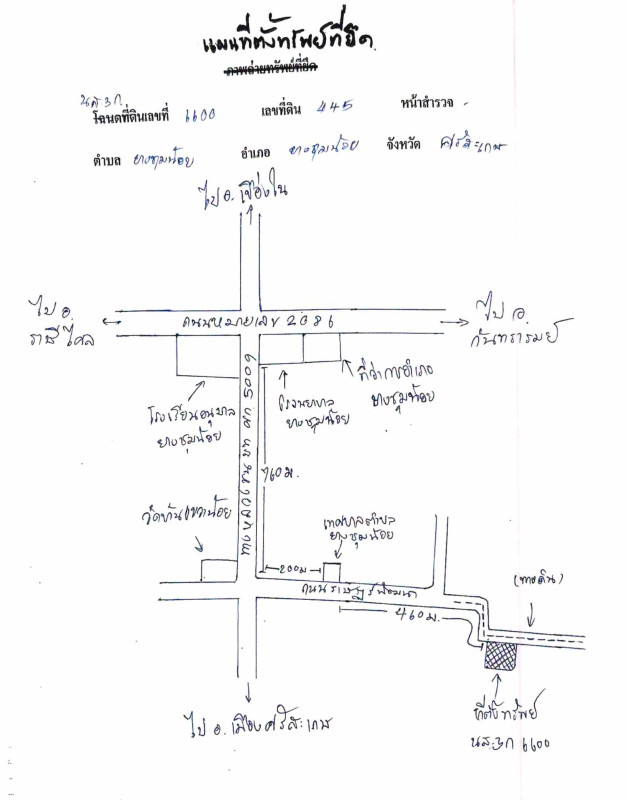 แผนที่ตั้งทรัพย์ที่ยึด
ภาพถ่ายทรัพย์ที่ยึด
นส.3ก
โฉนดที่ดินเลขที่ 6600 เลขที่ดิน 445 หน้าสำรวจ -
ตำบล ยางชุมน้อย อำเภอ ยางชุมน้อย จังหวัด ศรีสะเกษ
ไป อ. เขื่องใน
ไป อ. ราษีไศล
ถนนหมายเลข 2086
ไป อ. กันทรารมย์
โรงเรียนอนุบาล
ยางชุมน้อย
โรงพยาบาล
ยางชุมน้อย
ที่ว่าการอำเภอ
ยางชุมน้อย
ทางหลวงชนบท ศก 5009
760 ม.
เทศบาลตำบล
ยางชุมน้อย
200 ม
ถนนราษฎร์พัฒนา
460 ม.
(ทางดิน)
ที่ตั้งทรัพย์
นส.3ก 6600
ไป อ. เมืองศรีสะเกษ